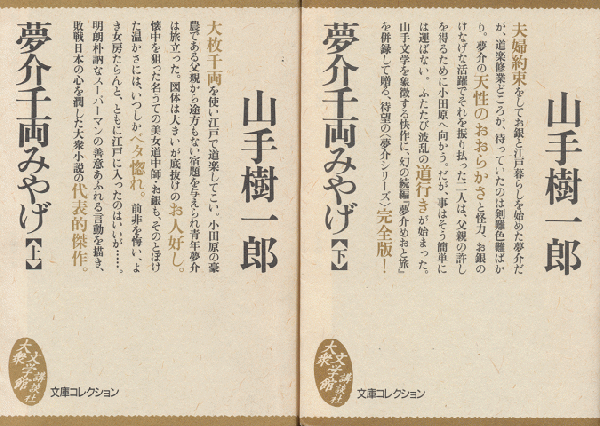 山手樹一郎
大枚千両を使い江戸で道楽してこい。小田原の豪
農である父親から途方もない宿題を与えられ青年夢介
は旅立った。図体は大きいが底抜けのお人好し。
懐中を狙った名うての美女道中師・お銀も、そのとぼけ
た温かさには、いつしかベタ惚れ。前非を悔い、よ
き女房たらんと、ともに江戸に入ったのはいいが……。
明朗朴訥なスーパーマンの善意あふれる言動を描き、
敗戦日本の心を潤した大衆小説の代表的傑作。
夢介千両みやげ【上】
大衆文学館
講談社
文庫コレクション
山手樹一郎
夫婦約束をしてお銀と江戸暮らしを始めた夢介だ
が、道楽修業どころか、待っていたのは剣難色難ばか
り。夢介の天性のおおらかさと怪力、お銀の
けなげな活躍でそれを振り払った二人は、父親の許し
を得るために小田原へ向かう。だが、事はそう簡単に
は運ばない。ふたたび波乱の道行きが始まった。
山手文学を象徴する快作に、幻の続編『夢介めおと旅』
を併録して贈る、待望の〈夢介シリーズ〉完全版！
夢介千両みやげ【下】
大衆文学館
講談社
文庫コレクション